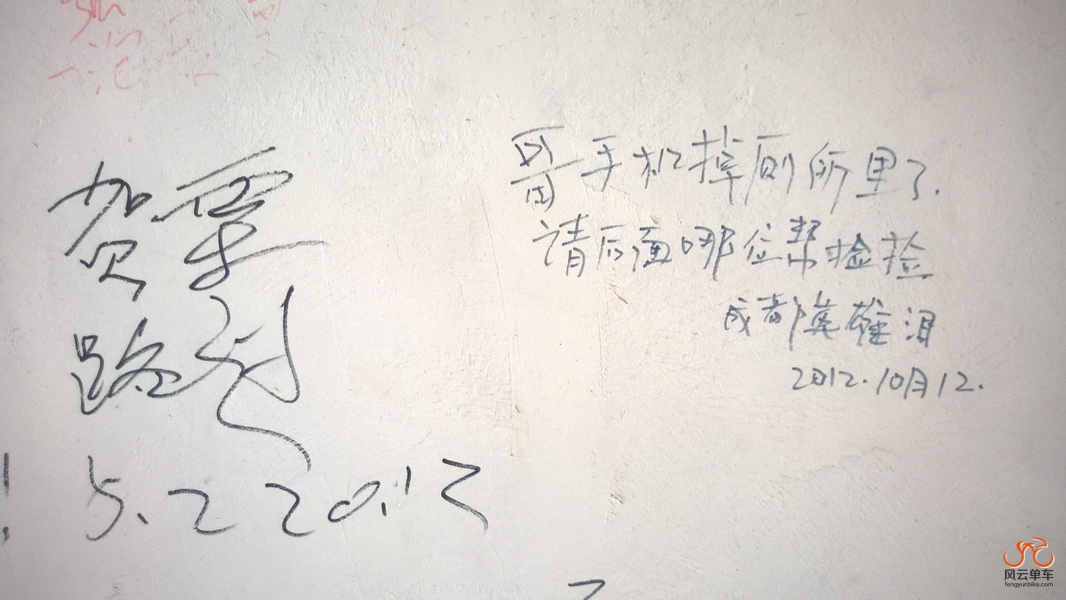 贺军
路过
5.2 2012
哥手机掉厕所里了.
请后面哪位帮捡捡
成都英雄泪
2012.10月12.
风云单车
fengyunbike.com